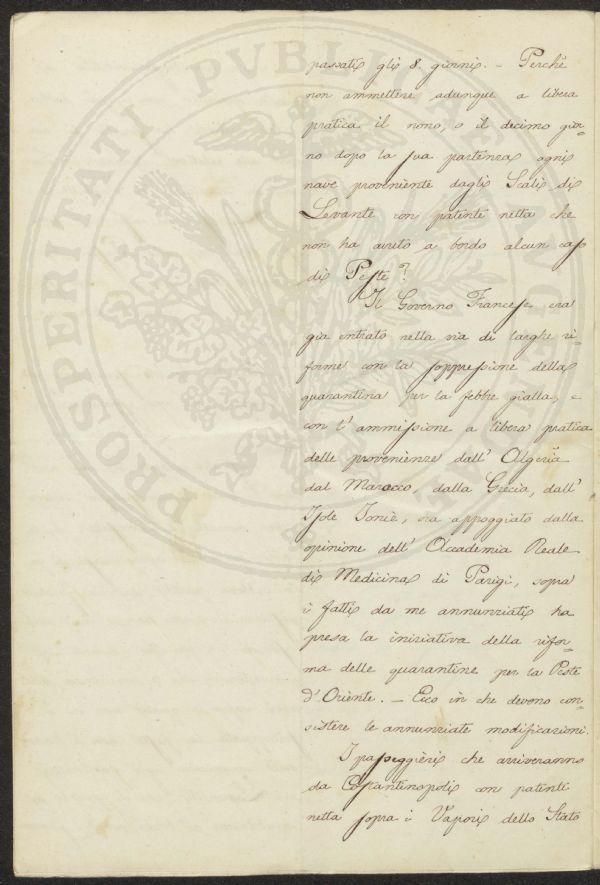 passati gli 8. giorni. – Perchè
non ammettere adunque a libera
pratica il nono, o il decimo gior-
no dopo la sua partenza ogni
nave proveniente dagli Scali di
Levante con patente netta che
non ha avuto a bordo alcun caso
di Peste?
Il Governo Francese era
già entrato nella via di larghe ri-
forme con la soppressione della
quarantina per la febbre gialla, e
con l'ammissione a libera pratica
delle provenienze dall'Algeria
dal Marocco, dalla Grecia, dall'
Isole Jonie, ora appoggiato dalla
opinione dell'Accademia Reale
di Medicina di Parigi, sopra
i fatti da me annunziati ha
presa la iniziativa della rifor-
ma delle quarantine per la Peste
d'Oriente. – Ecco in che devono con-
sistere le annunziate modificazioni.
I passeggieri che arriveranno
da Costantinopoli con patenti
netta sopra i Vapori dello Stato
PROSPERITATI PVBLICAE